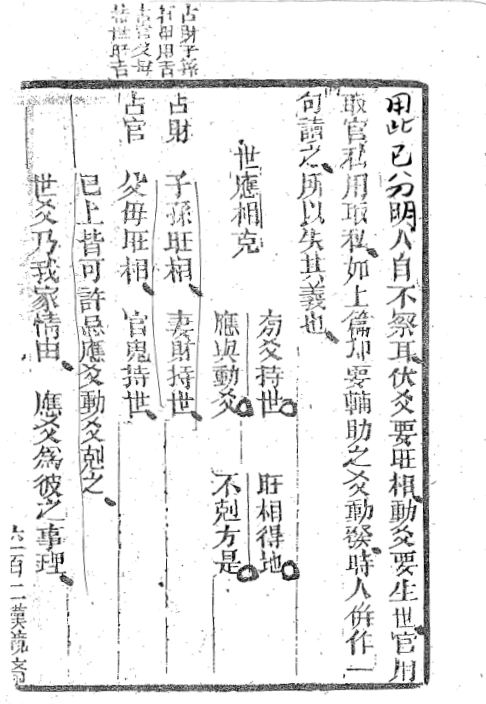 占財子孫
占官父母
用此已分明人自不祭耳伏爻要旺相動爻要生世官用
取官私用取私如上篇却要輔助之爻動發時人倂作一
句讀之所以失其義也
世應相克
有爻持世 旺相得地
應與動爻 不剋方是
占財 子孫旺相 妻財持世
占官 父毋旺相 官鬼持世
已上皆可許忌應爻動爻剋之
世爻乃我家情由 應爻爲彼之事理
六一百二漢鏡齋